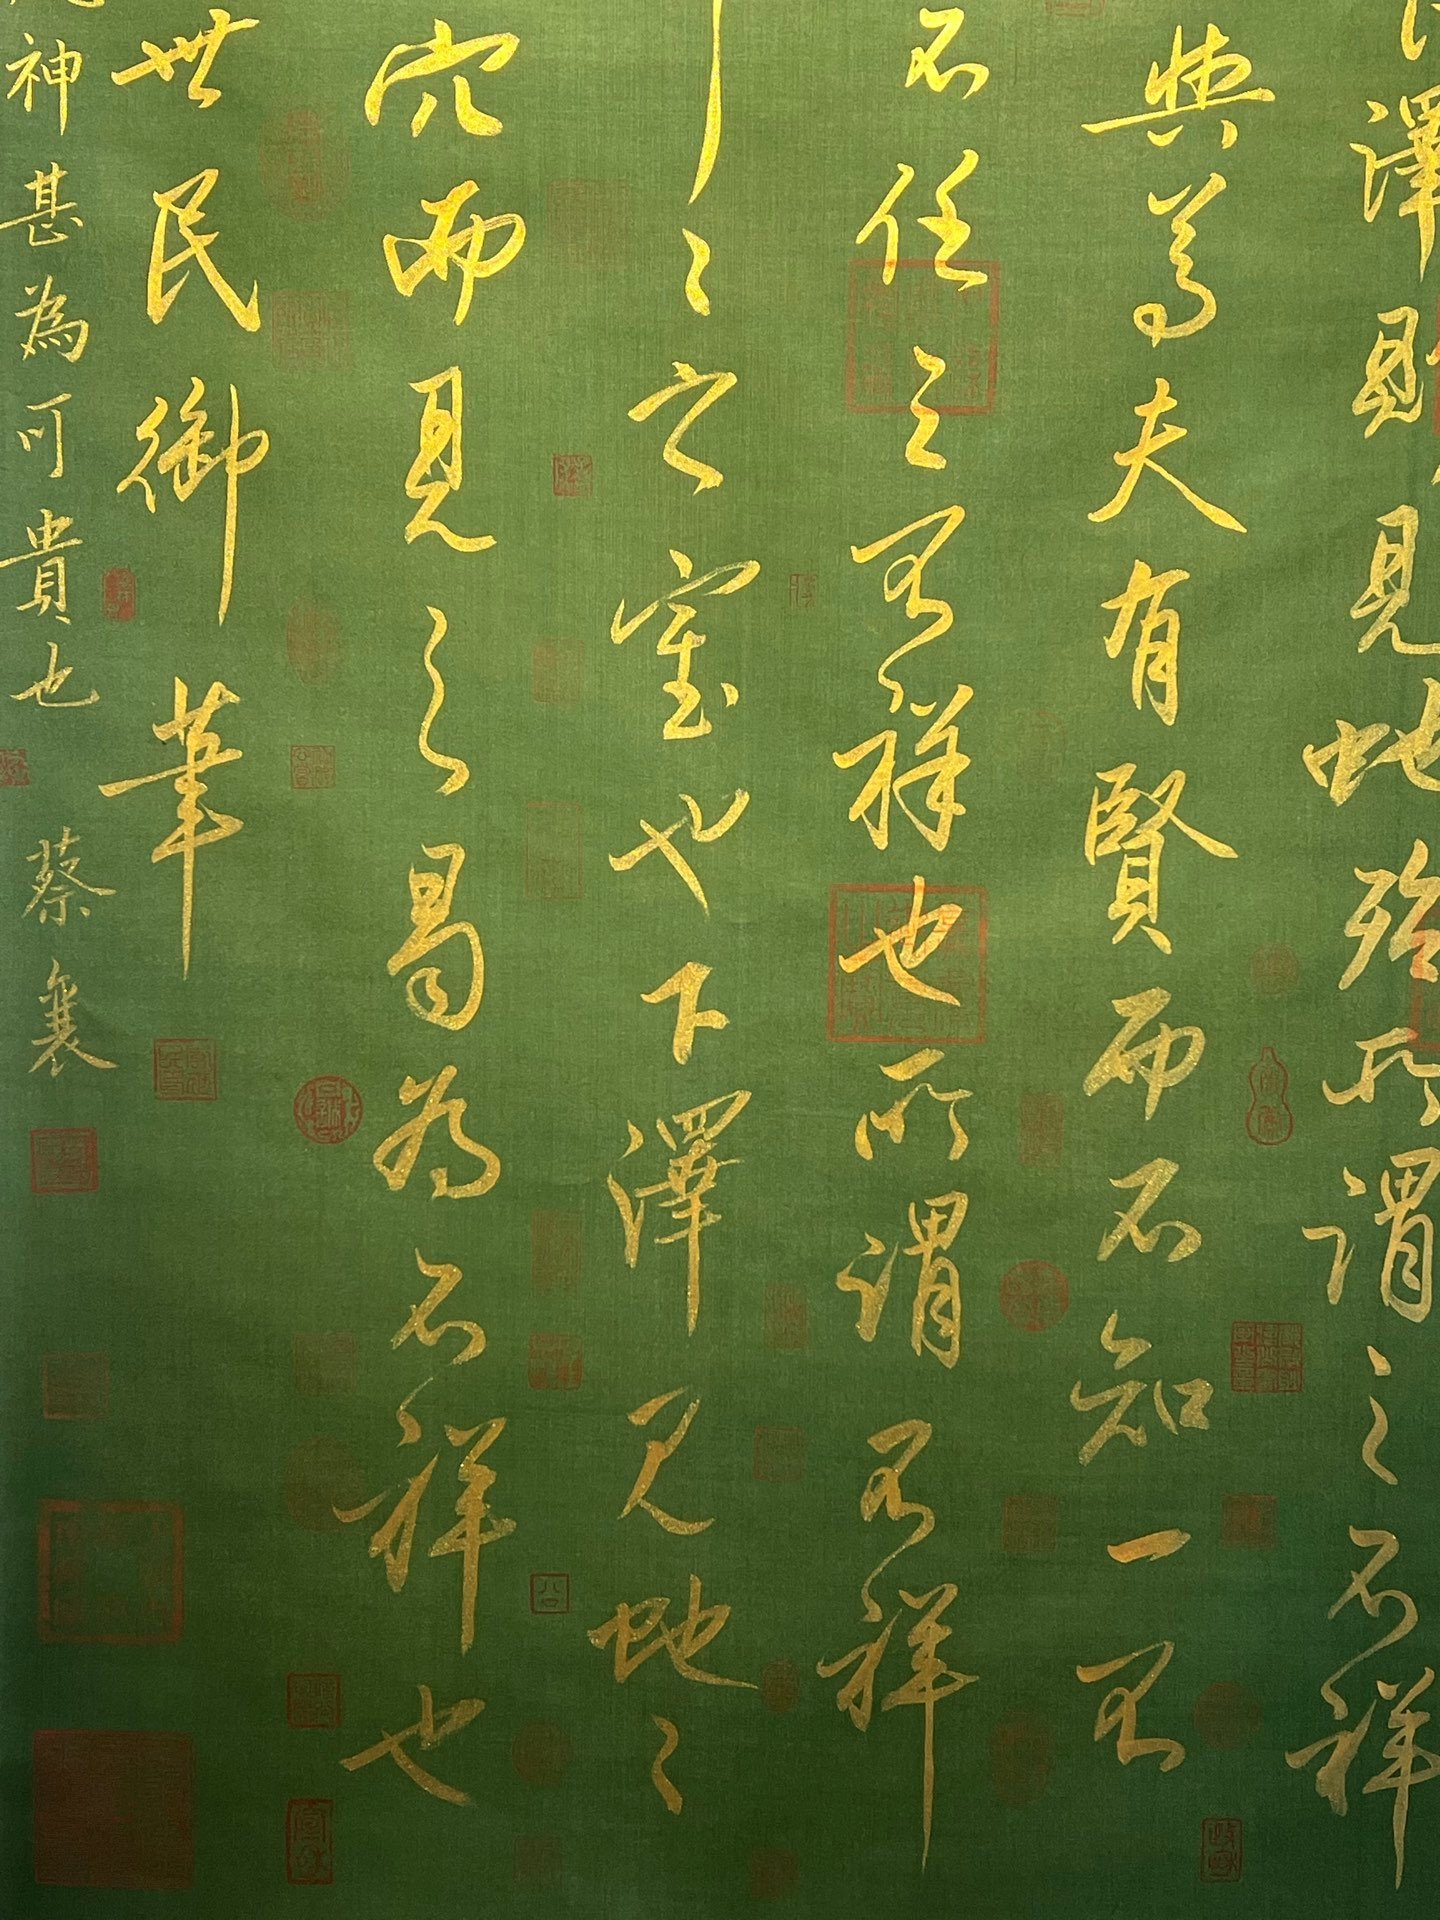 澤則見蛇殆所謂之不祥
與焉夫有賢而不知一不
不任三不祥也所謂不祥
〻之室也下澤見蛇〻
穴而見之曷為不祥也
世民御筆
神甚為可貴也 蔡襄